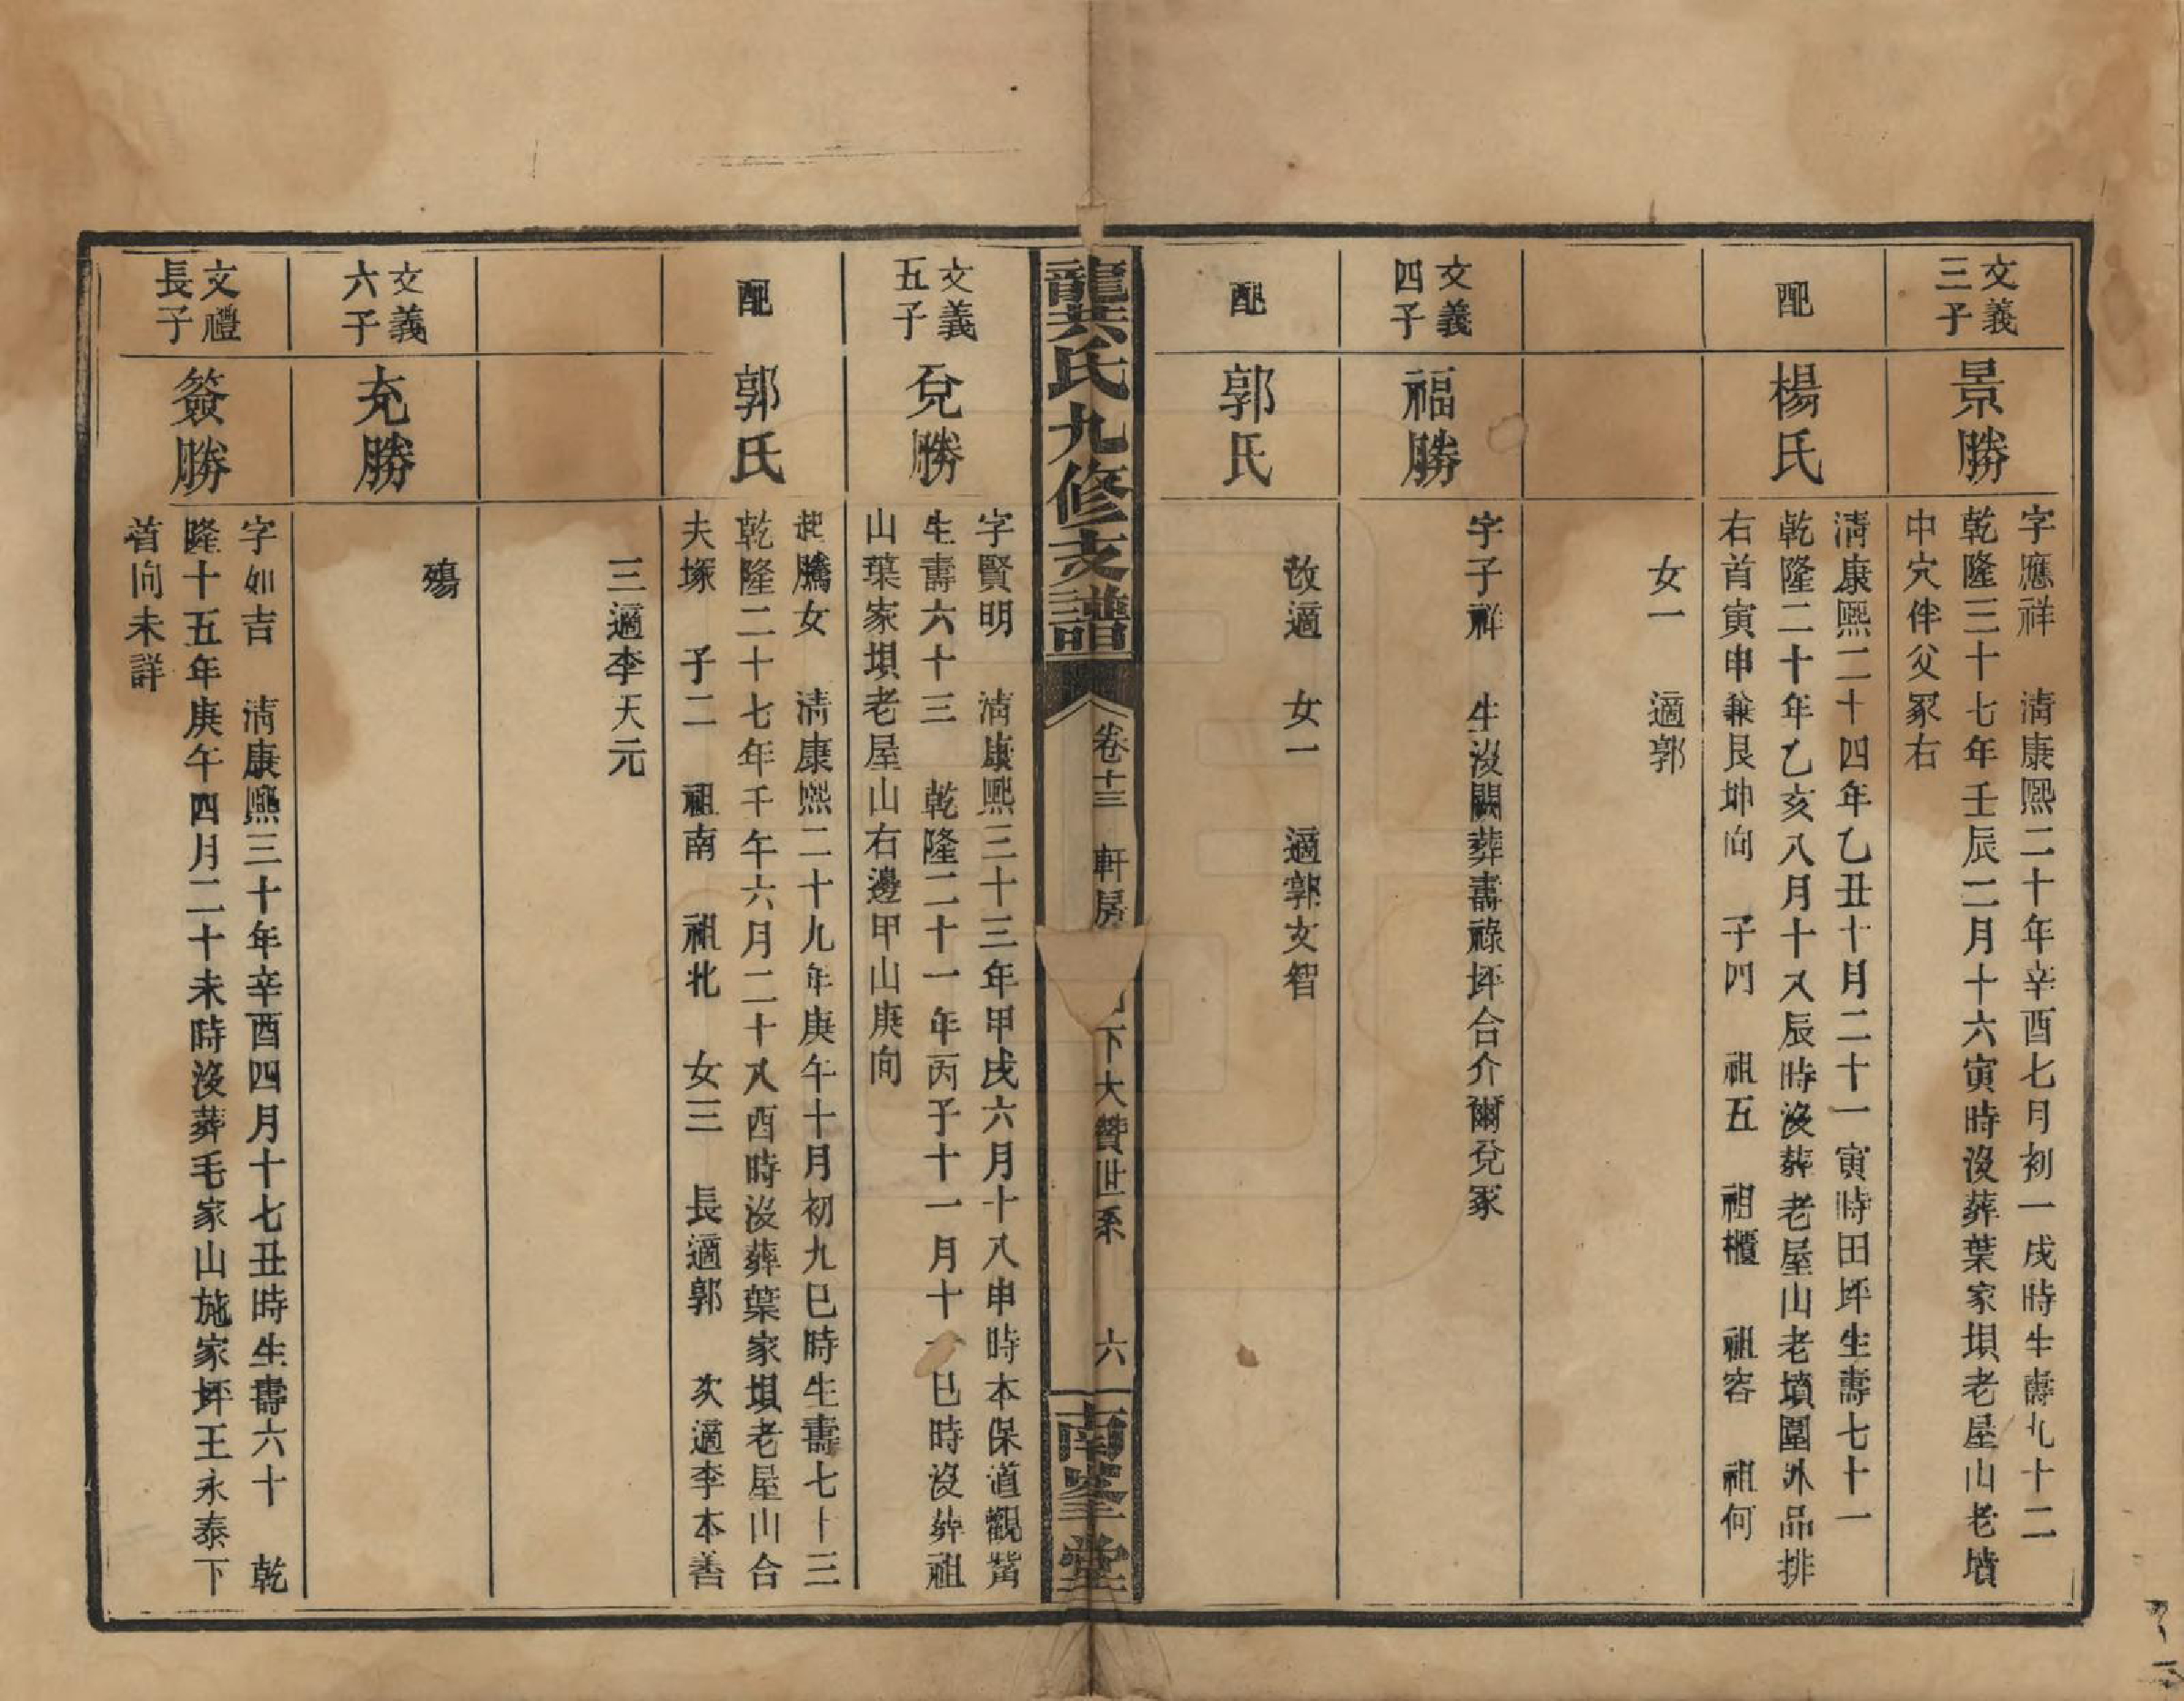 文義
三子
景勝
字應祥 清康熙二十年辛酉七月初一戌時生壽九十二
乾隆三十七年壬辰二月十六寅時沒葬葉家垻老屋山老墳
中穴伴父冢右
配
楊氏
清康熙二十四年乙丑十月二十一寅時田坪生壽七十一
乾隆二十年乙亥八月十八辰時沒葬老屋山老墳圍外品排
右首寅申兼艮坤向 子四 祖五 祖櫃 祖容 祖何
女一 適郭
文義
四子
福勝
字子祥 生沒闕葬壽祿坪合介爾兌冢
配
郭氏
改適 女一 適郭文智
龍洪氏九修支譜
卷十三 軒房
下大贊世系 六
南峯堂
文義
五子
兌勝
字賢明 清康熙三十三年甲戌六月十八申時本保道觀背
生壽六十三 乾隆二十一年丙子十一月十 巳時沒葬祖
山葉家垻老屋山右邊甲山庚向
配
郭氏
起騰女 清康熙二十九年庚午十月初九巳時生壽七十三
乾隆二十七年千午六月二十八酉時沒葬葉家垻老屋山合
夫塚 子二 祖南 祖北 女三 長適郭 次適李本善
三適李天元
文義
六子
充勝
殤
文禮
長子
簽勝
字如吉 清康熙三十年辛酉四月十七丑時生壽六十 乾
隆十五年庚午四月二十未時沒葬毛家山施家坪王永泰下
首向未詳